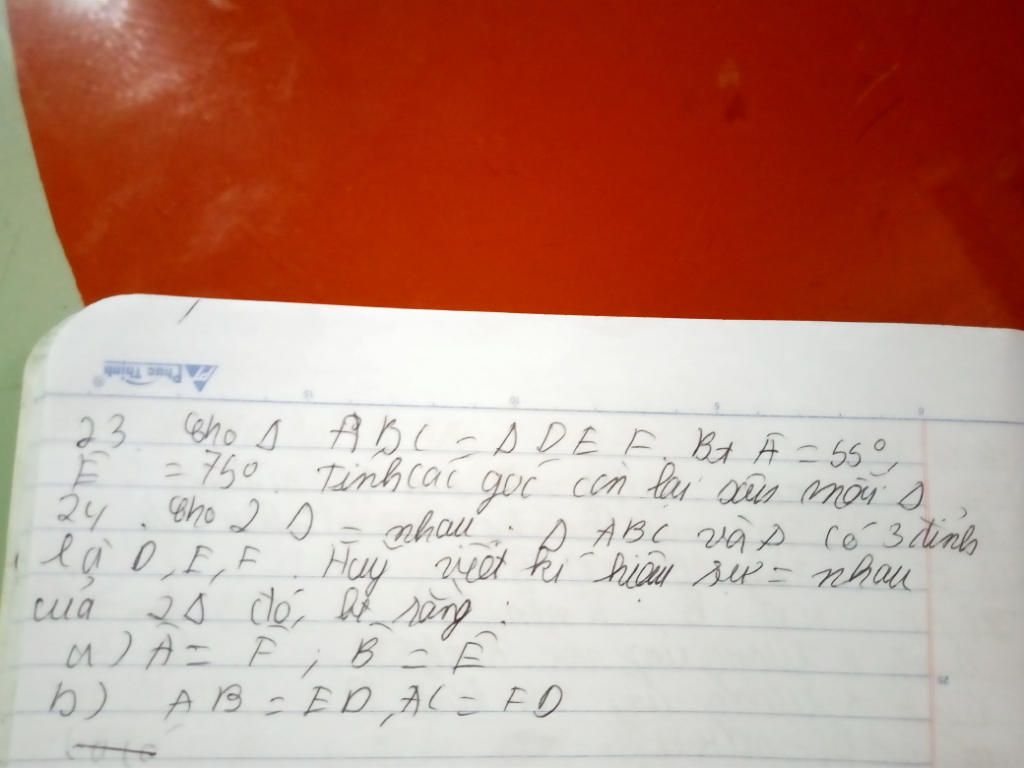 Phúc Thịnh
0 5 10 15
23 Cho Δ ABC = Δ DEF. Bt Â = 55°,
Ê = 75°. Tính các góc còn lại của mỗi Δ
24. Cho 2 Δ = nhau. Δ ABC và Δ có 3 đỉnh
là D, E, F. Hãy viết kí hiệu sự = nhau
của 2Δ đó, bt rằng:
a) Â = F̂ ; B̂ = Ê
b) AB = ED, AC = FD
25